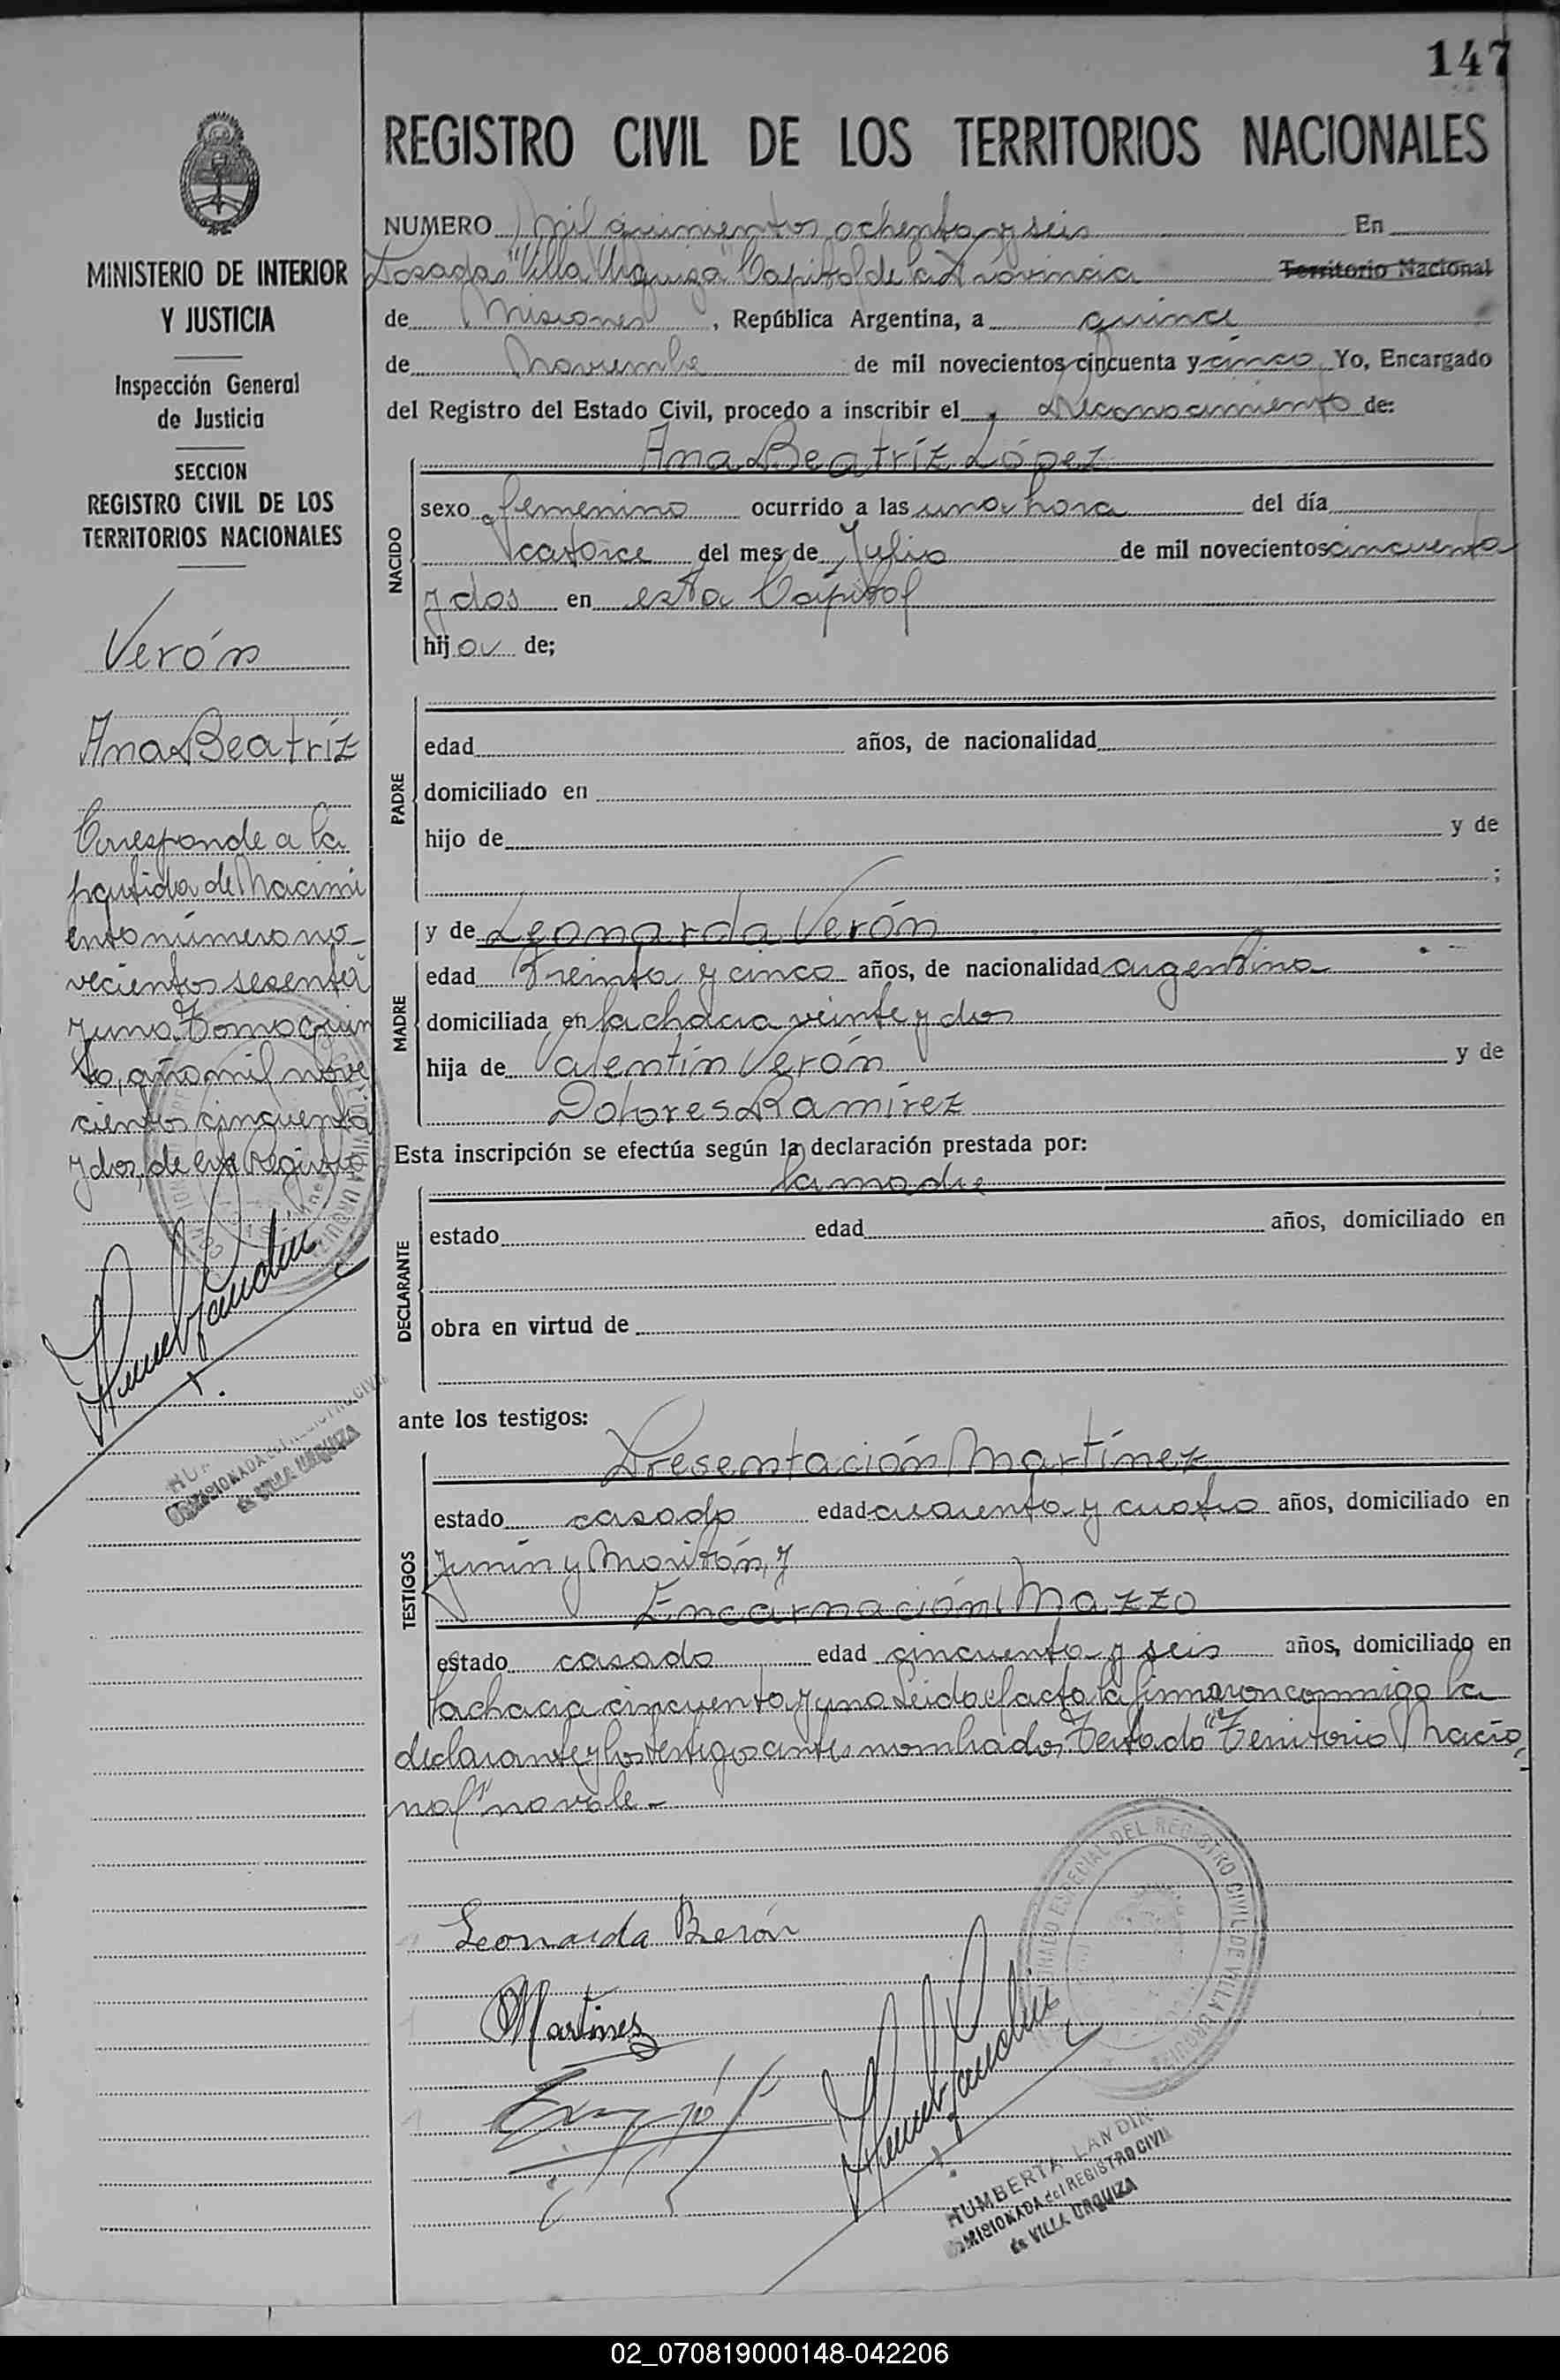 147
REGISTRO CIVIL DE LOS TERRITORIOS NACIONALES
MINISTERIO DE INTERIOR
Y JUSTICIA
Inspección General
de Justicia
SECCION
REGISTRO CIVIL DE LOS
TERRITORIOS NACIONALES
Verón
Ana Beatríz
Corresponde a la
partida de Nacimi
ento número no-
vecientos sesenta
y uno. Tomo quin
to, año mil nove
cientos cincuenta
y dos, de este Registro
NUMERO Mil quinientos ochenta y seis En
Posadas "Villa Urquiza" Capital de la Provincia Territorio Nacional
de Misiones, República Argentina, a quince
de Noviembre de mil novecientos cincuenta y cinco Yo, Encargado
del Registro del Estado Civil, procedo a inscribir el Reconocimiento de:
Ana Beatríz López
NACIDO
sexo femenino ocurrido a las una hora del día
catorce del mes de Julio de mil novecientos cincuenta
y dos en esta Capital
hija de;
PADRE
edad años, de nacionalidad
domiciliado en
hijo de y de
;
y de Leonarda Verón
MADRE
edad Treinta y cinco años, de nacionalidad argentina
domiciliada en la chacra veinte y dos
hija de Valentín Verón y de
Dolores Ramírez
Esta inscripción se efectúa según la declaración prestada por:
la madre
DECLARANTE
estado edad años, domiciliado en
obra en virtud de
ante los testigos:
Presentación Martínez
TESTIGOS
estado casado edad cuarenta y cuatro años, domiciliado en
Junín y Moritán, y
Encarnación Mazzo
estado casado edad cincuenta y seis años, domiciliado en
la chacra cincuenta y uno. Leida el acta la firmaron conmigo la
declarante y los testigos antes nombrados. Testado "Territorio Nacio-
nal" no vale.-
Leonarda Berón
Martines
HUMBERTA LANDIN
COMISIONADA del REGISTRO CIVIL
de VILLA URQUIZA
02_070819000148-042206